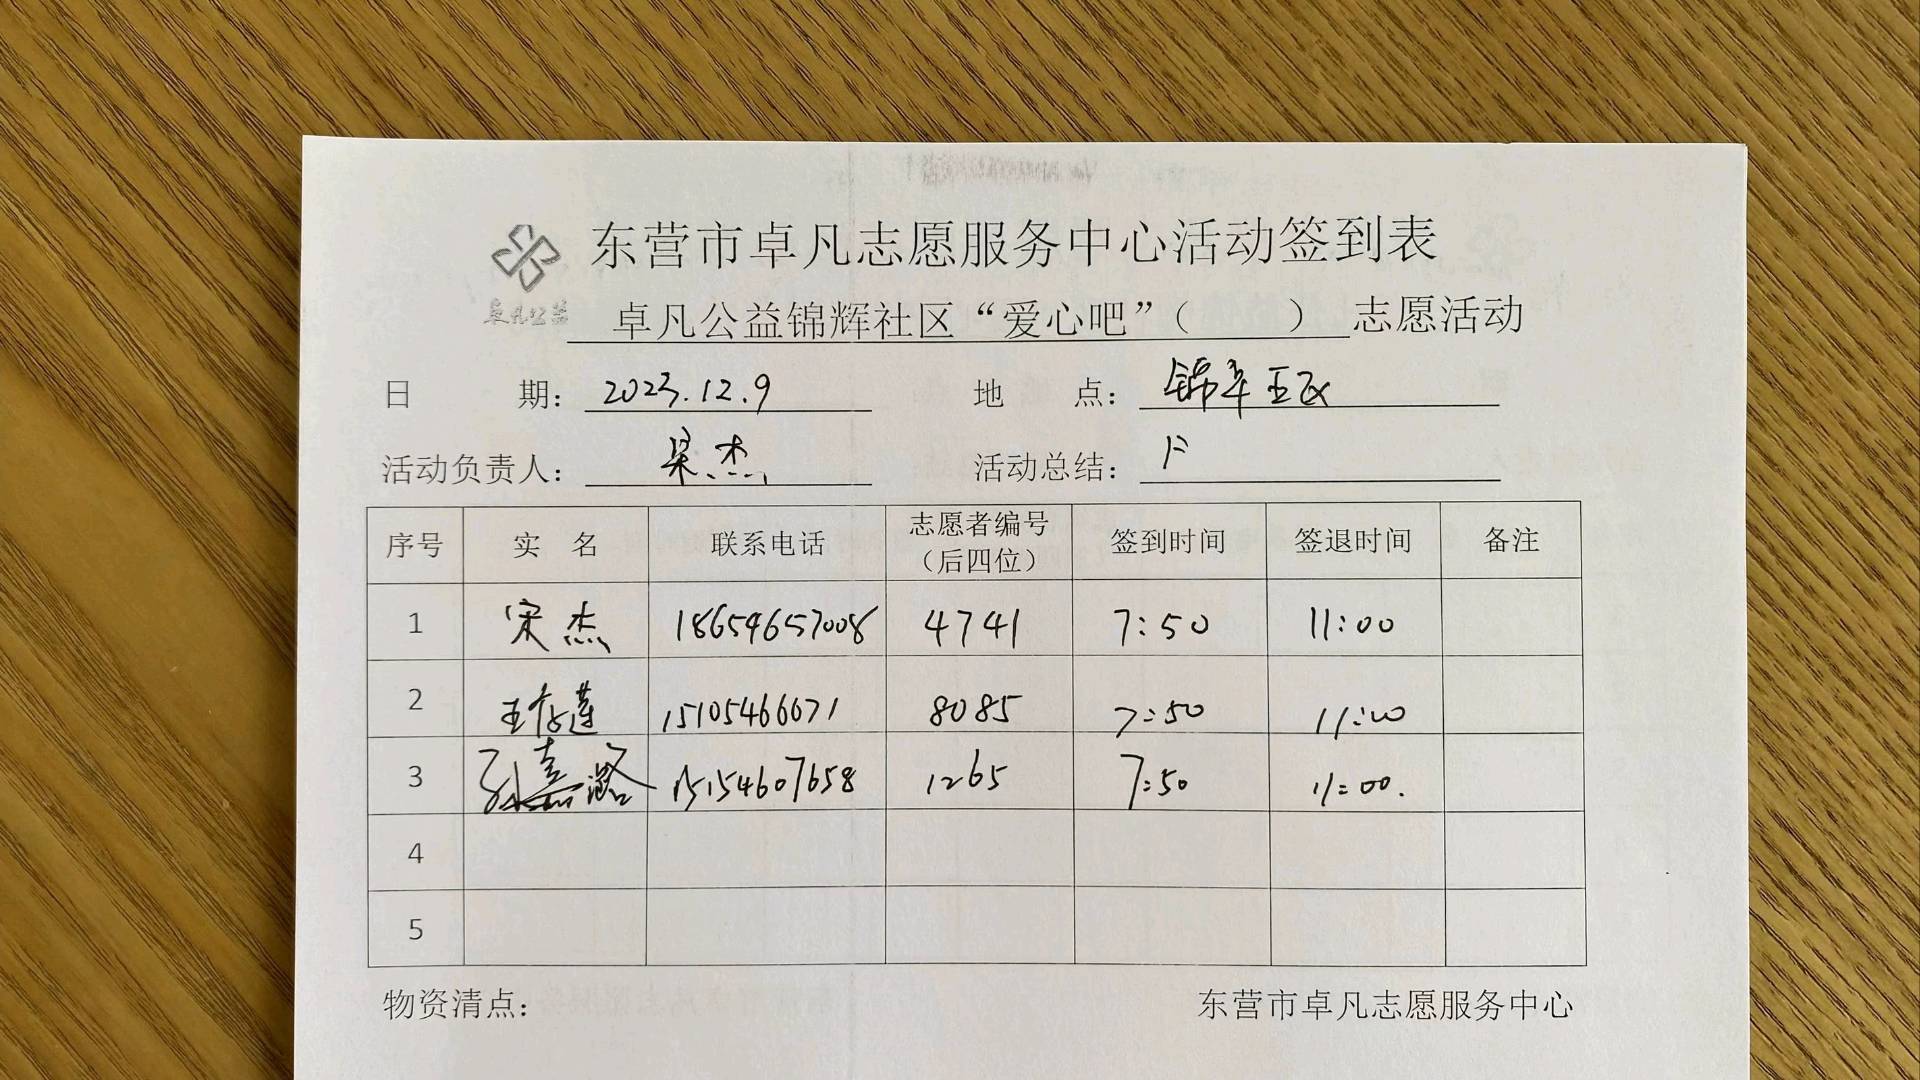 东营市卓凡志愿服务中心活动签到表
卓凡公益
卓凡公益锦辉社区“爱心吧”（ ）志愿活动
日 期：2023.12.9 地 点：锦华五区
活动负责人：宋杰 活动总结：
序号 实 名 联系电话 志愿者编号（后四位） 签到时间 签退时间 备注
1 宋杰 18654657008 4741 7:50 11:00
2 王存莲 15105466071 8085 7:50 11:00
3 孙嘉潞 15154607658 1265 7:50 11:00.
4
5
物资清点： 东营市卓凡志愿服务中心